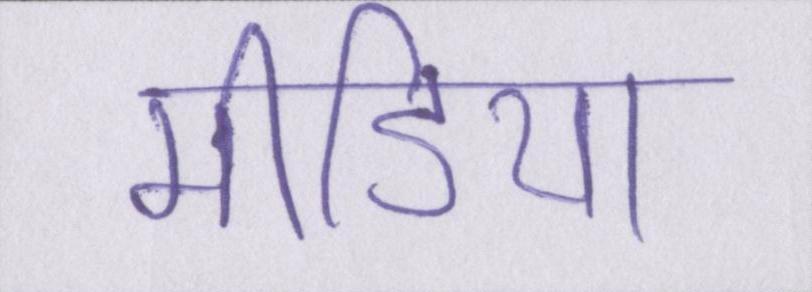 मीडिया